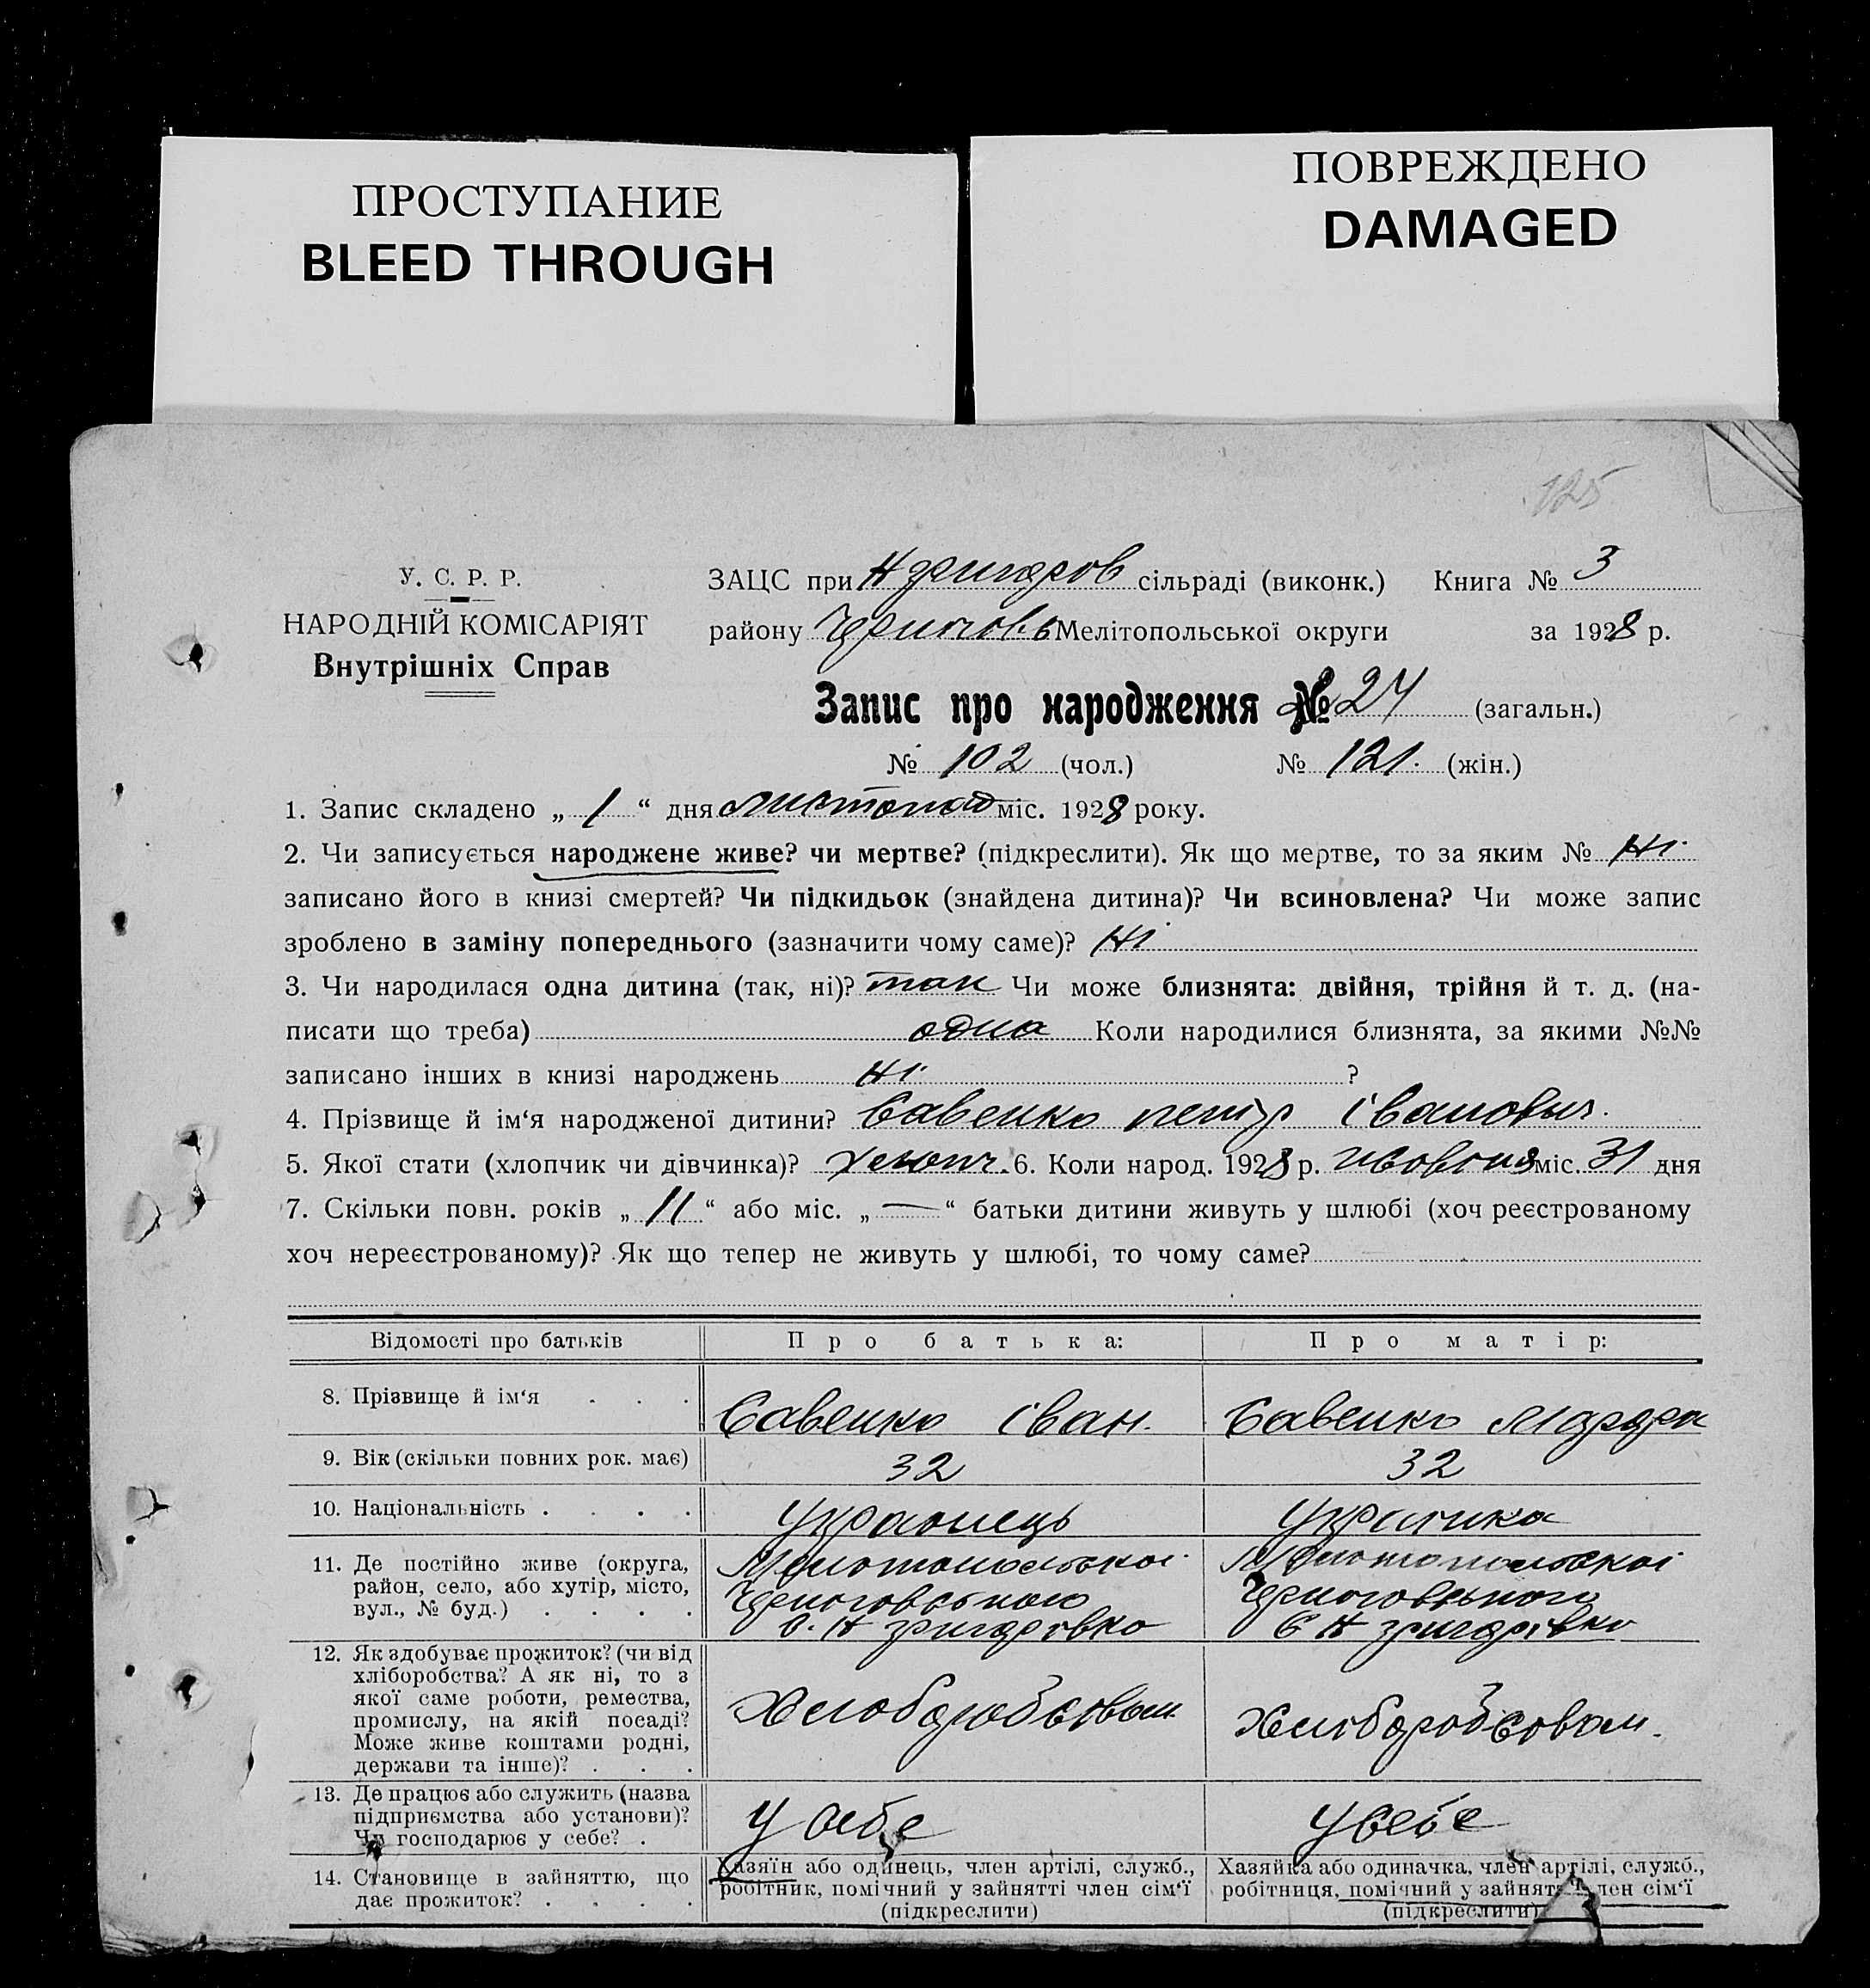 ПРОСТУПАНИЕ
BLEED THROUGH
ПОВРЕЖДЕНО
DAMAGED
125
У. С. Р. Р.
НАРОДНІЙ КОМІСАРІЯТ
Внутрішніх Справ
ЗАЦС при сільраді (виконк.) Книга № 3
району Мелітопольської округи за 1928 р.
Запис про народження № 24 (загальн.)
№ 102 (чол.) № 121. (жін.)
1. Запис складено „ 1 “ дня листопад міс. 1928 року.
2. Чи записується народжене живе? чи мертве? (підкреслити). Як що мертве, то за яким № Ні
записано його в книзі смертей? Чи підкидьок (знайдена дитина)? Чи всиновлена? Чи може запис
зроблено в заміну попереднього (зазначити чому саме)? Ні
3. Чи народилася одна дитина (так, ні)? так Чи може близнята: двійня, трійня й т. д. (на-
писати що треба) одна Коли народилися близнята, за якими №№
записано інших в книзі народжень Ні ?
4. Прізвище й ім‘я народженої дитини? Савенко петр Іванович.
5. Якої стати (хлопчик чи дівчинка)? хлопч. 6. Коли народ. 1928 р. міс. 31 дня
7. Скільки повн. років „ 11 “ або міс. „ — “ батьки дитини живуть у шлюбі (хоч реєстрованому
хоч нереєстрованому)? Як що тепер не живуть у шлюбі, то чому саме?
Відомості про батьків Про батька: Про матір:
8. Прізвище й ім‘я . . . Савенко Іван. Савенко
9. Вік (скільки повних рок. має) 32 32
10. Національність . . . . Українець Українка
11. Де постійно живе (округа,
район, село, або хутір, місто,
вул., № буд.) . . . .
Мелітопольскоі
Мелітопольскоі
12. Як здобуває прожиток? (чи від
хліборобства? А як ні, то з
якої саме роботи, ремества,
промислу, на якій посаді?
Може живе коштами родні,
держави та інше)? . . .
Хліборобсовом
Хліборобсовом.
13. Де працює або служить (назва
підприємства або установи)?
Чи господарює у себе? .
У себе
У себе
14. Становище в зайняттю, що
дає прожиток? . . . .
Хазяїн або одинець, член артілі, служб.,
робітник, помічний у зайнятті член сім‘ї
(підкреслити)
Хазяйка або одиначка, член артілі, служб.,
робітниця, помічний у зайнят член сім‘ї
(підкреслити)